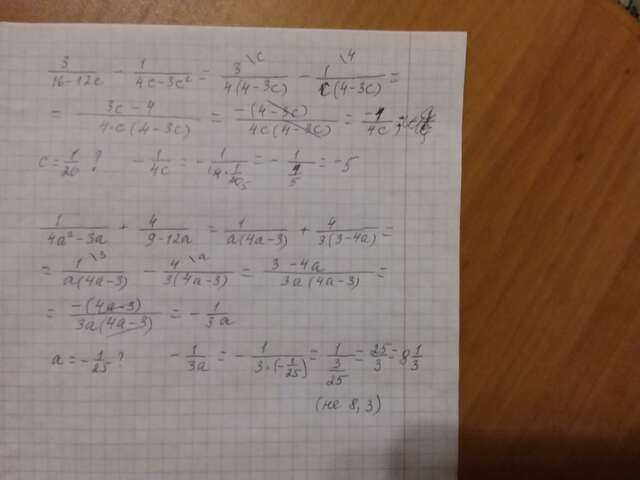 3/(16-12c) - 1/(4c-3c²) = 3\c/(4(4-3c)) - 1\4/(c(4-3c)) =
= (3c-4)/(4·c(4-3c)) = -(4-3c)/(4c(4-3c)) = -1/(4c)
c = 1/20 ? -1/(4c) = -1/(4·1/20) = -1/(1/5) = -5
1/(4a²-3a) + 4/(9-12a) = 1/(a(4a-3)) + 4/(3(3-4a)) =
= 1\3/(a(4a-3)) - 4\a/(3(4a-3)) = (3-4a)/(3a(4a-3)) =
= -(4a-3)/(3a(4a-3)) = -1/(3a)
a = -1/25 ? -1/(3a) = -1/(3·(-1/25)) = 1/(3/25) = 25/3 = 8 1/3
(не 8,3)